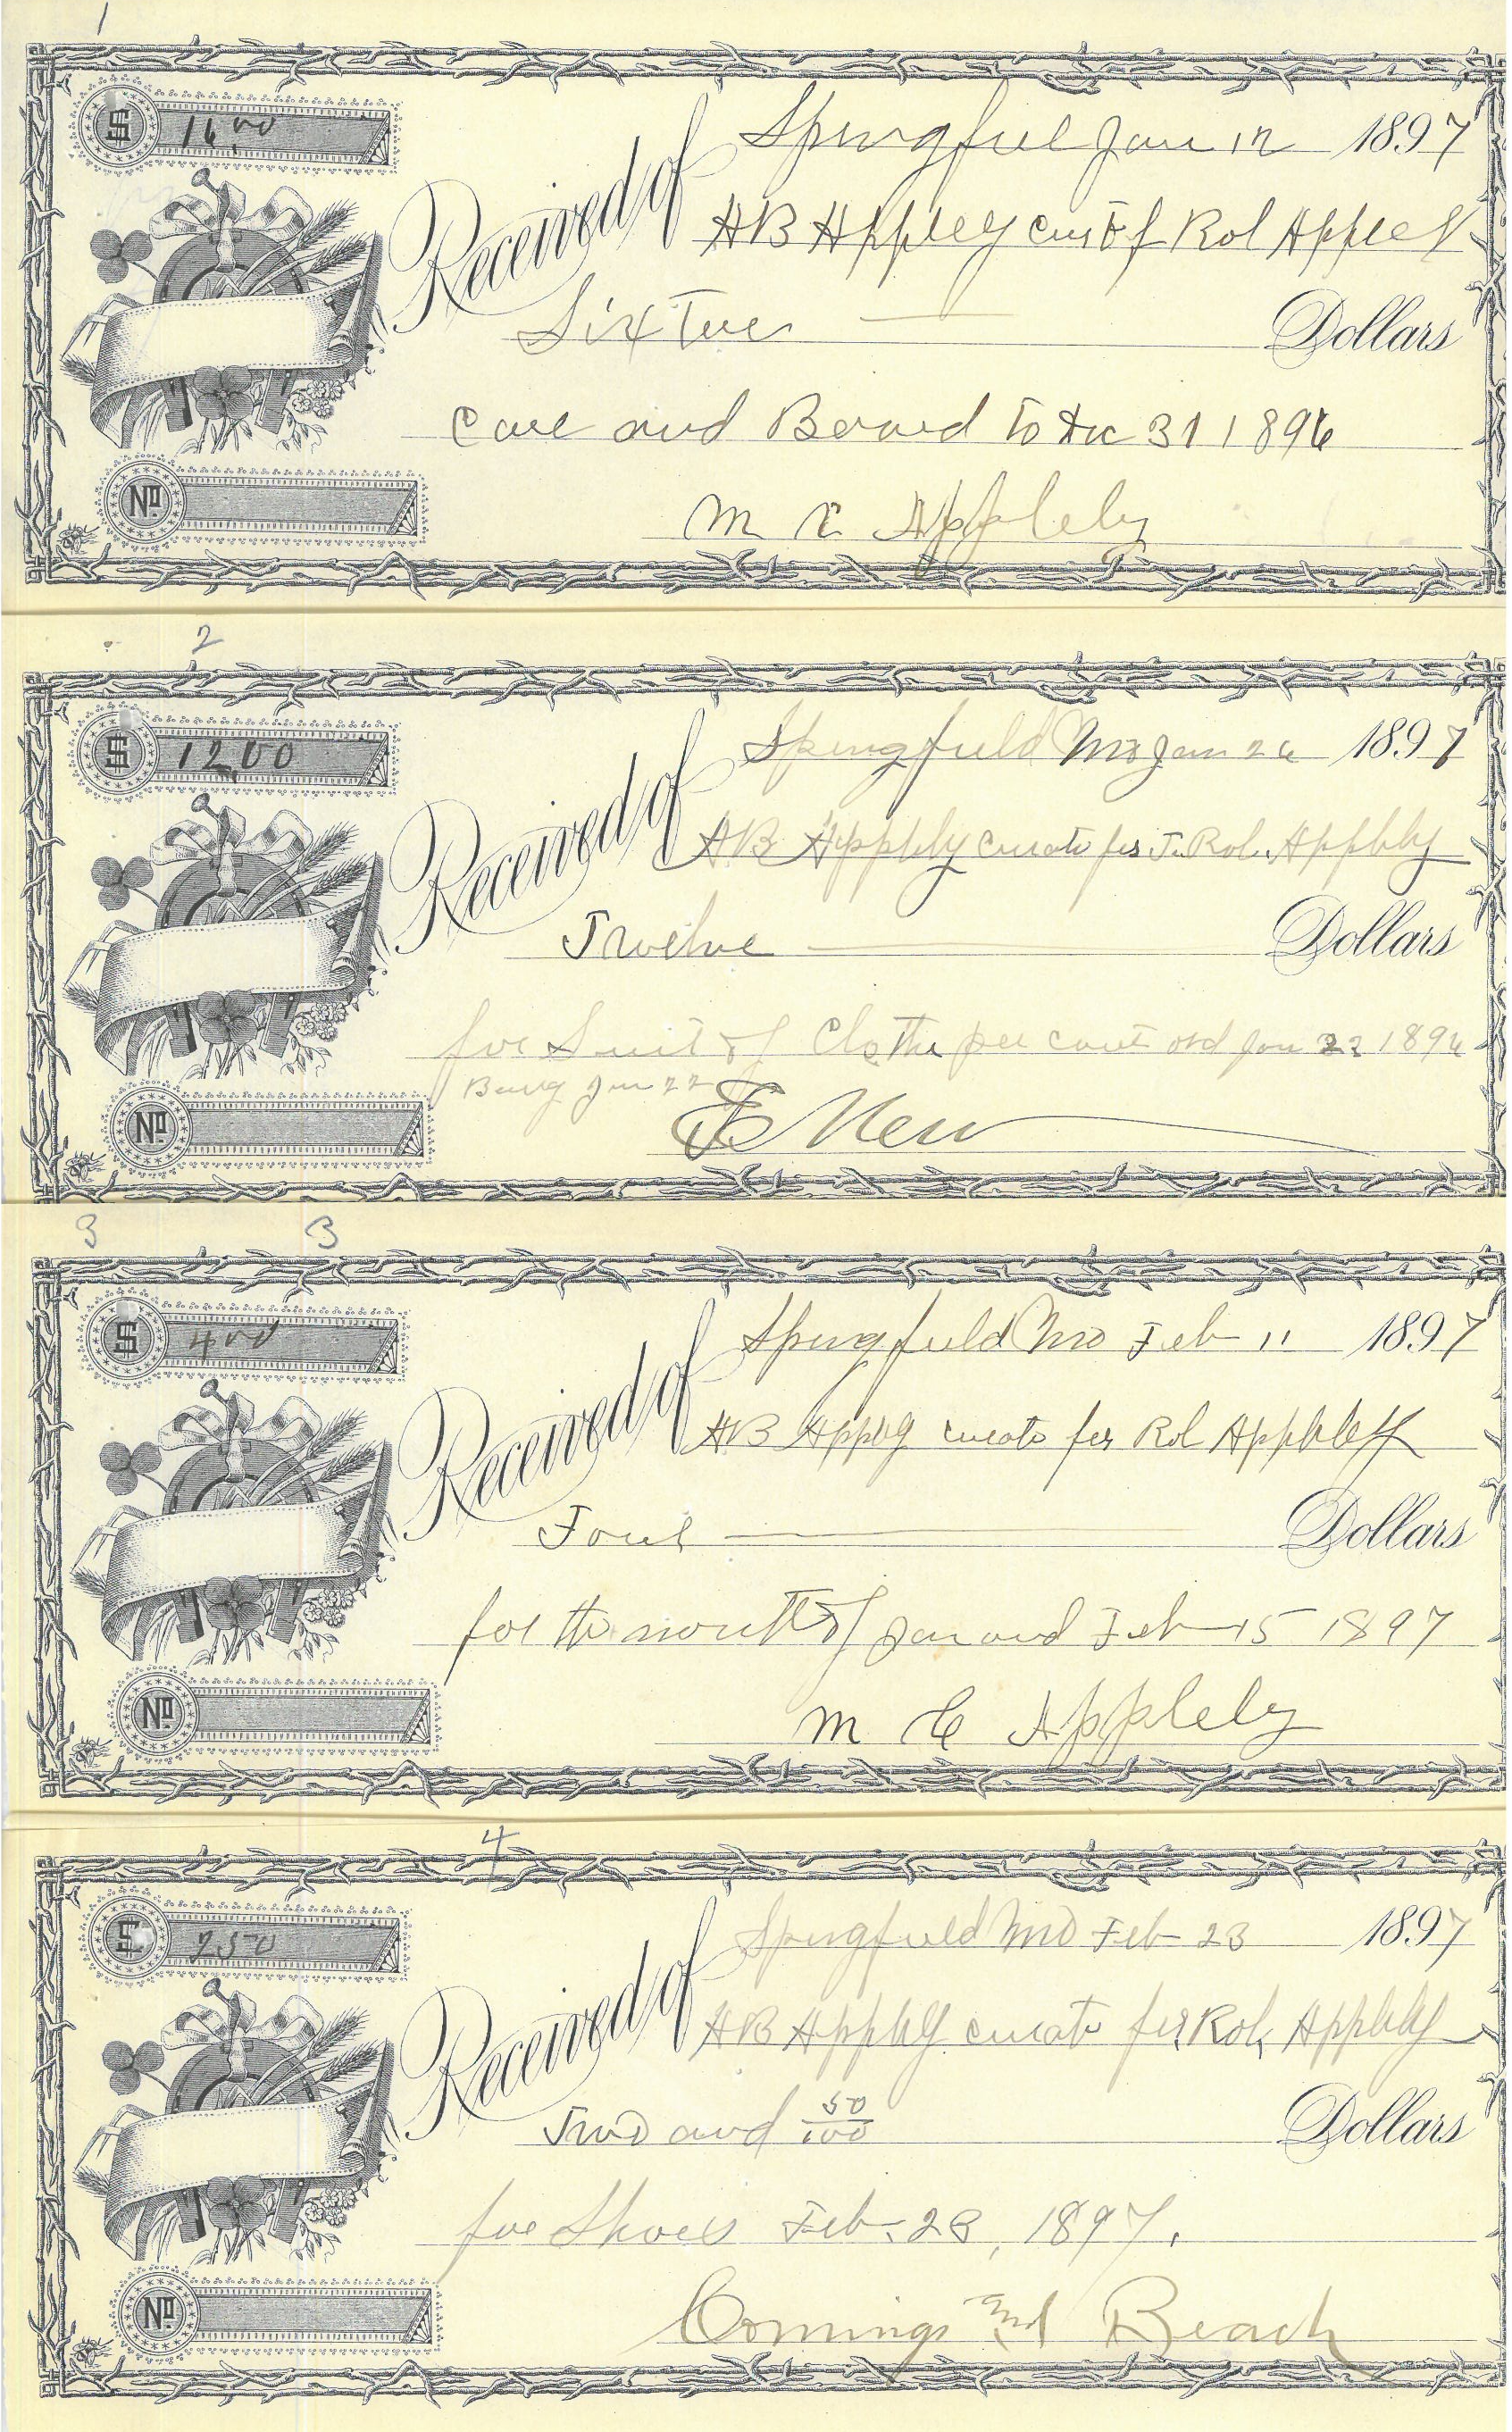 1
$ 16.00
Springfiel Jan 12 1897
Received of
HB Appley Cur of Rol Appley
Sixteen Dollars
Care and Board To Dec 31 1896
No
M C Appleby
2
$ 12.00
Springfield Mo Jan 26 1897
Received of
HB Appleby curato for J. Rol. Appleby
Twelve Dollars
for Suit of Clothe per court ord Jan 22 1896
Jan 22
No
New
3 3
$ 4 00
Springfield Mo Feb 11 1897
Received of
HB Appley curato for Rol Appleby
Four Dollars
for the month of Jan and Feb 15 1897
No
M C Appleby
4
$ 2 50
Springfield Mo Feb 23 1897
Received of
HB Appleby curato for Rol. Appleby
Two and 50/100 Dollars
for Shoes Feb. 23, 1897.
No
Comings and Beach